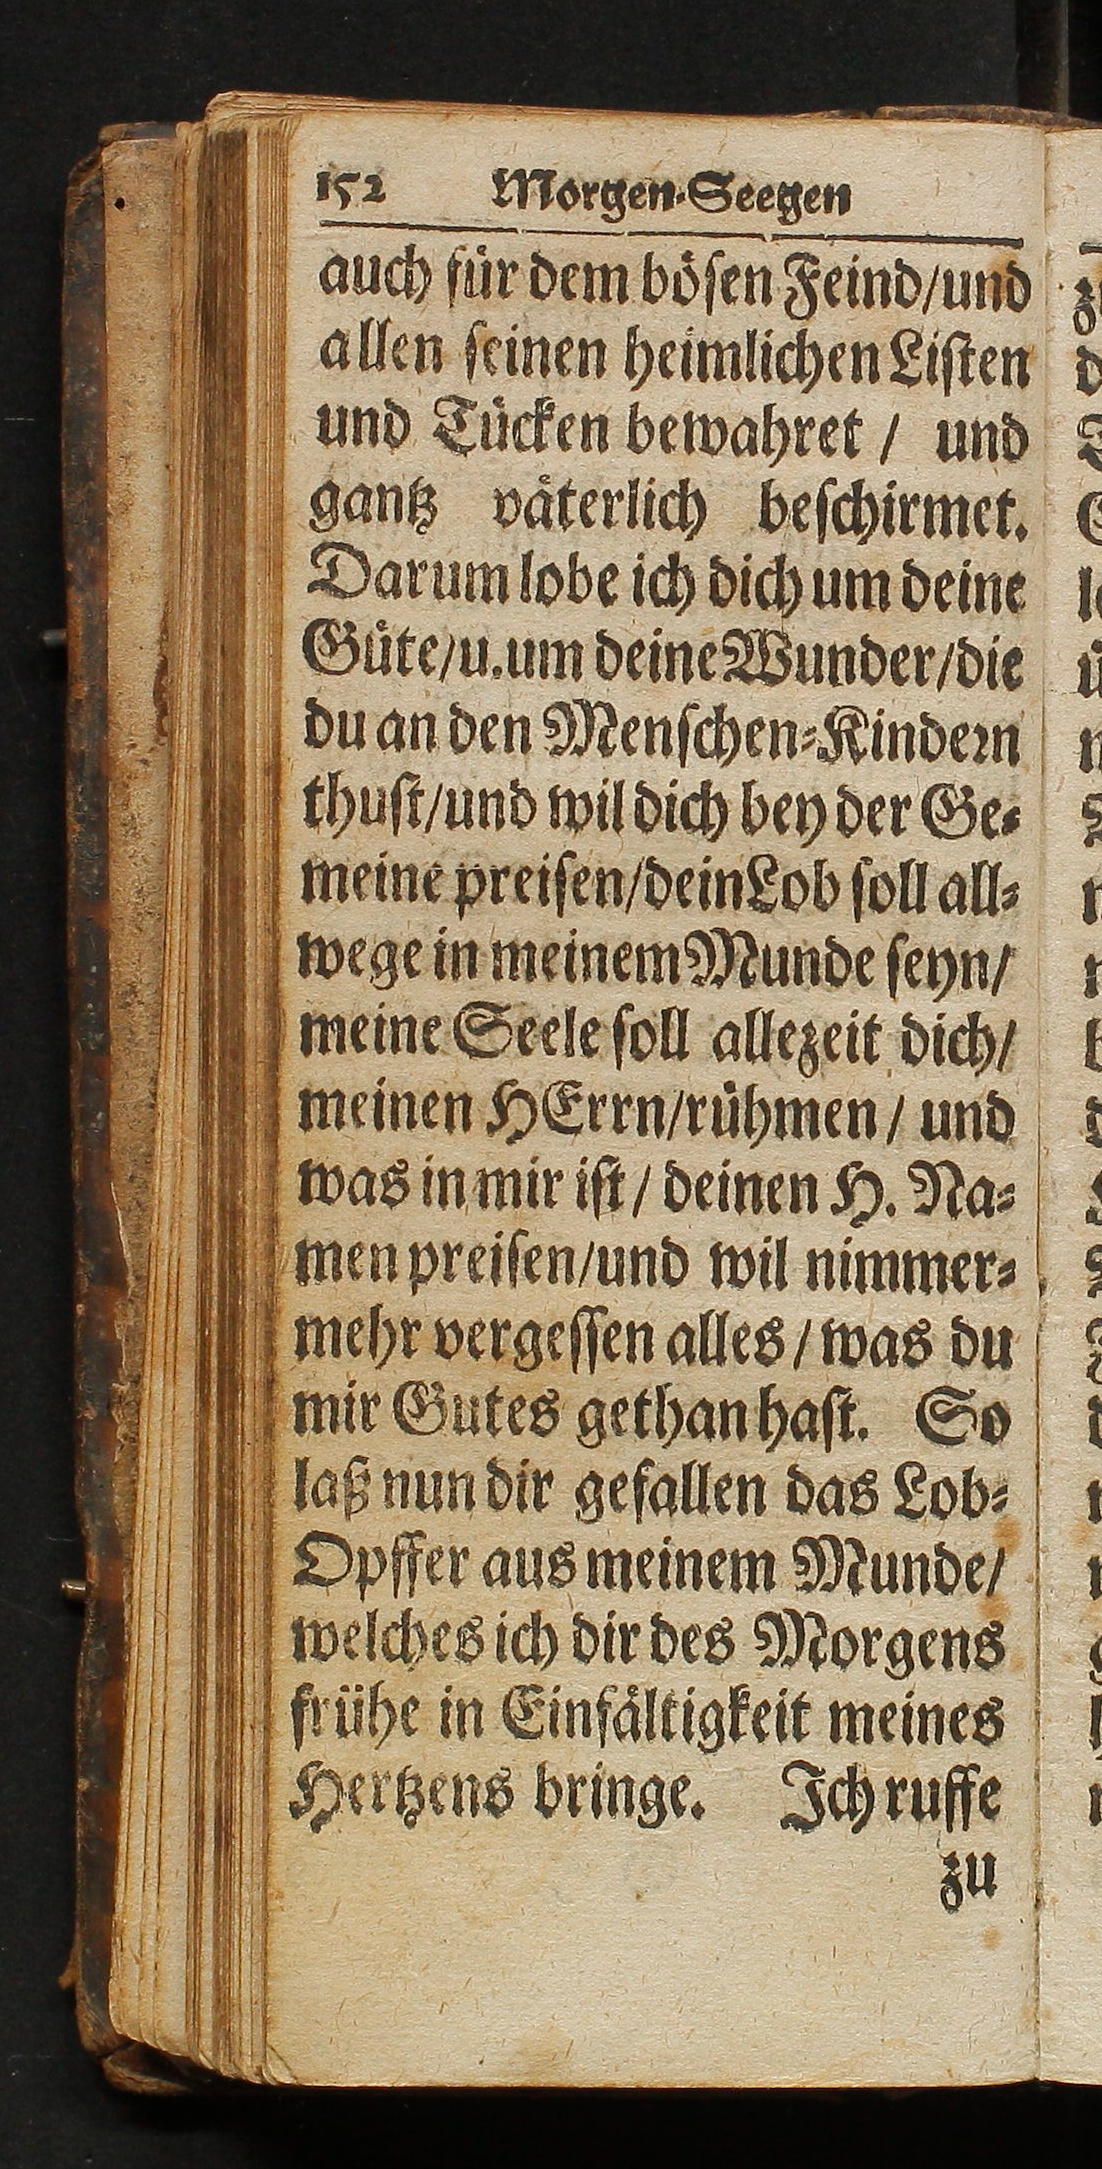 152 Morgen-Seegen
auch für dem bösen Feind/und
allen seinen heimlichen Listen
und Tücken bewahret / und
gantz väterlich beschirmet.
Darum lobe ich dich um deine
Güte/u.um deine Wunder/die
du an den Menschen-Kindern
thust/und wil dich bey der Ge-
meine preisen/dein Lob soll all-
wege in meinem Munde seyn/
meine Seele soll allezeit dich/
meinen HErrn/rühmen / und
was in mir ist / deinen H. Na-
men preisen/und wil nimmer-
mehr vergessen alles / was du
mir Gutes gethan hast. So
laß nun dir gefallen das Lob-
Opffer aus meinem Munde/
welches ich dir des Morgens
frühe in Einfältigkeit meines
Hertzens bringe. Ich ruffe
zu